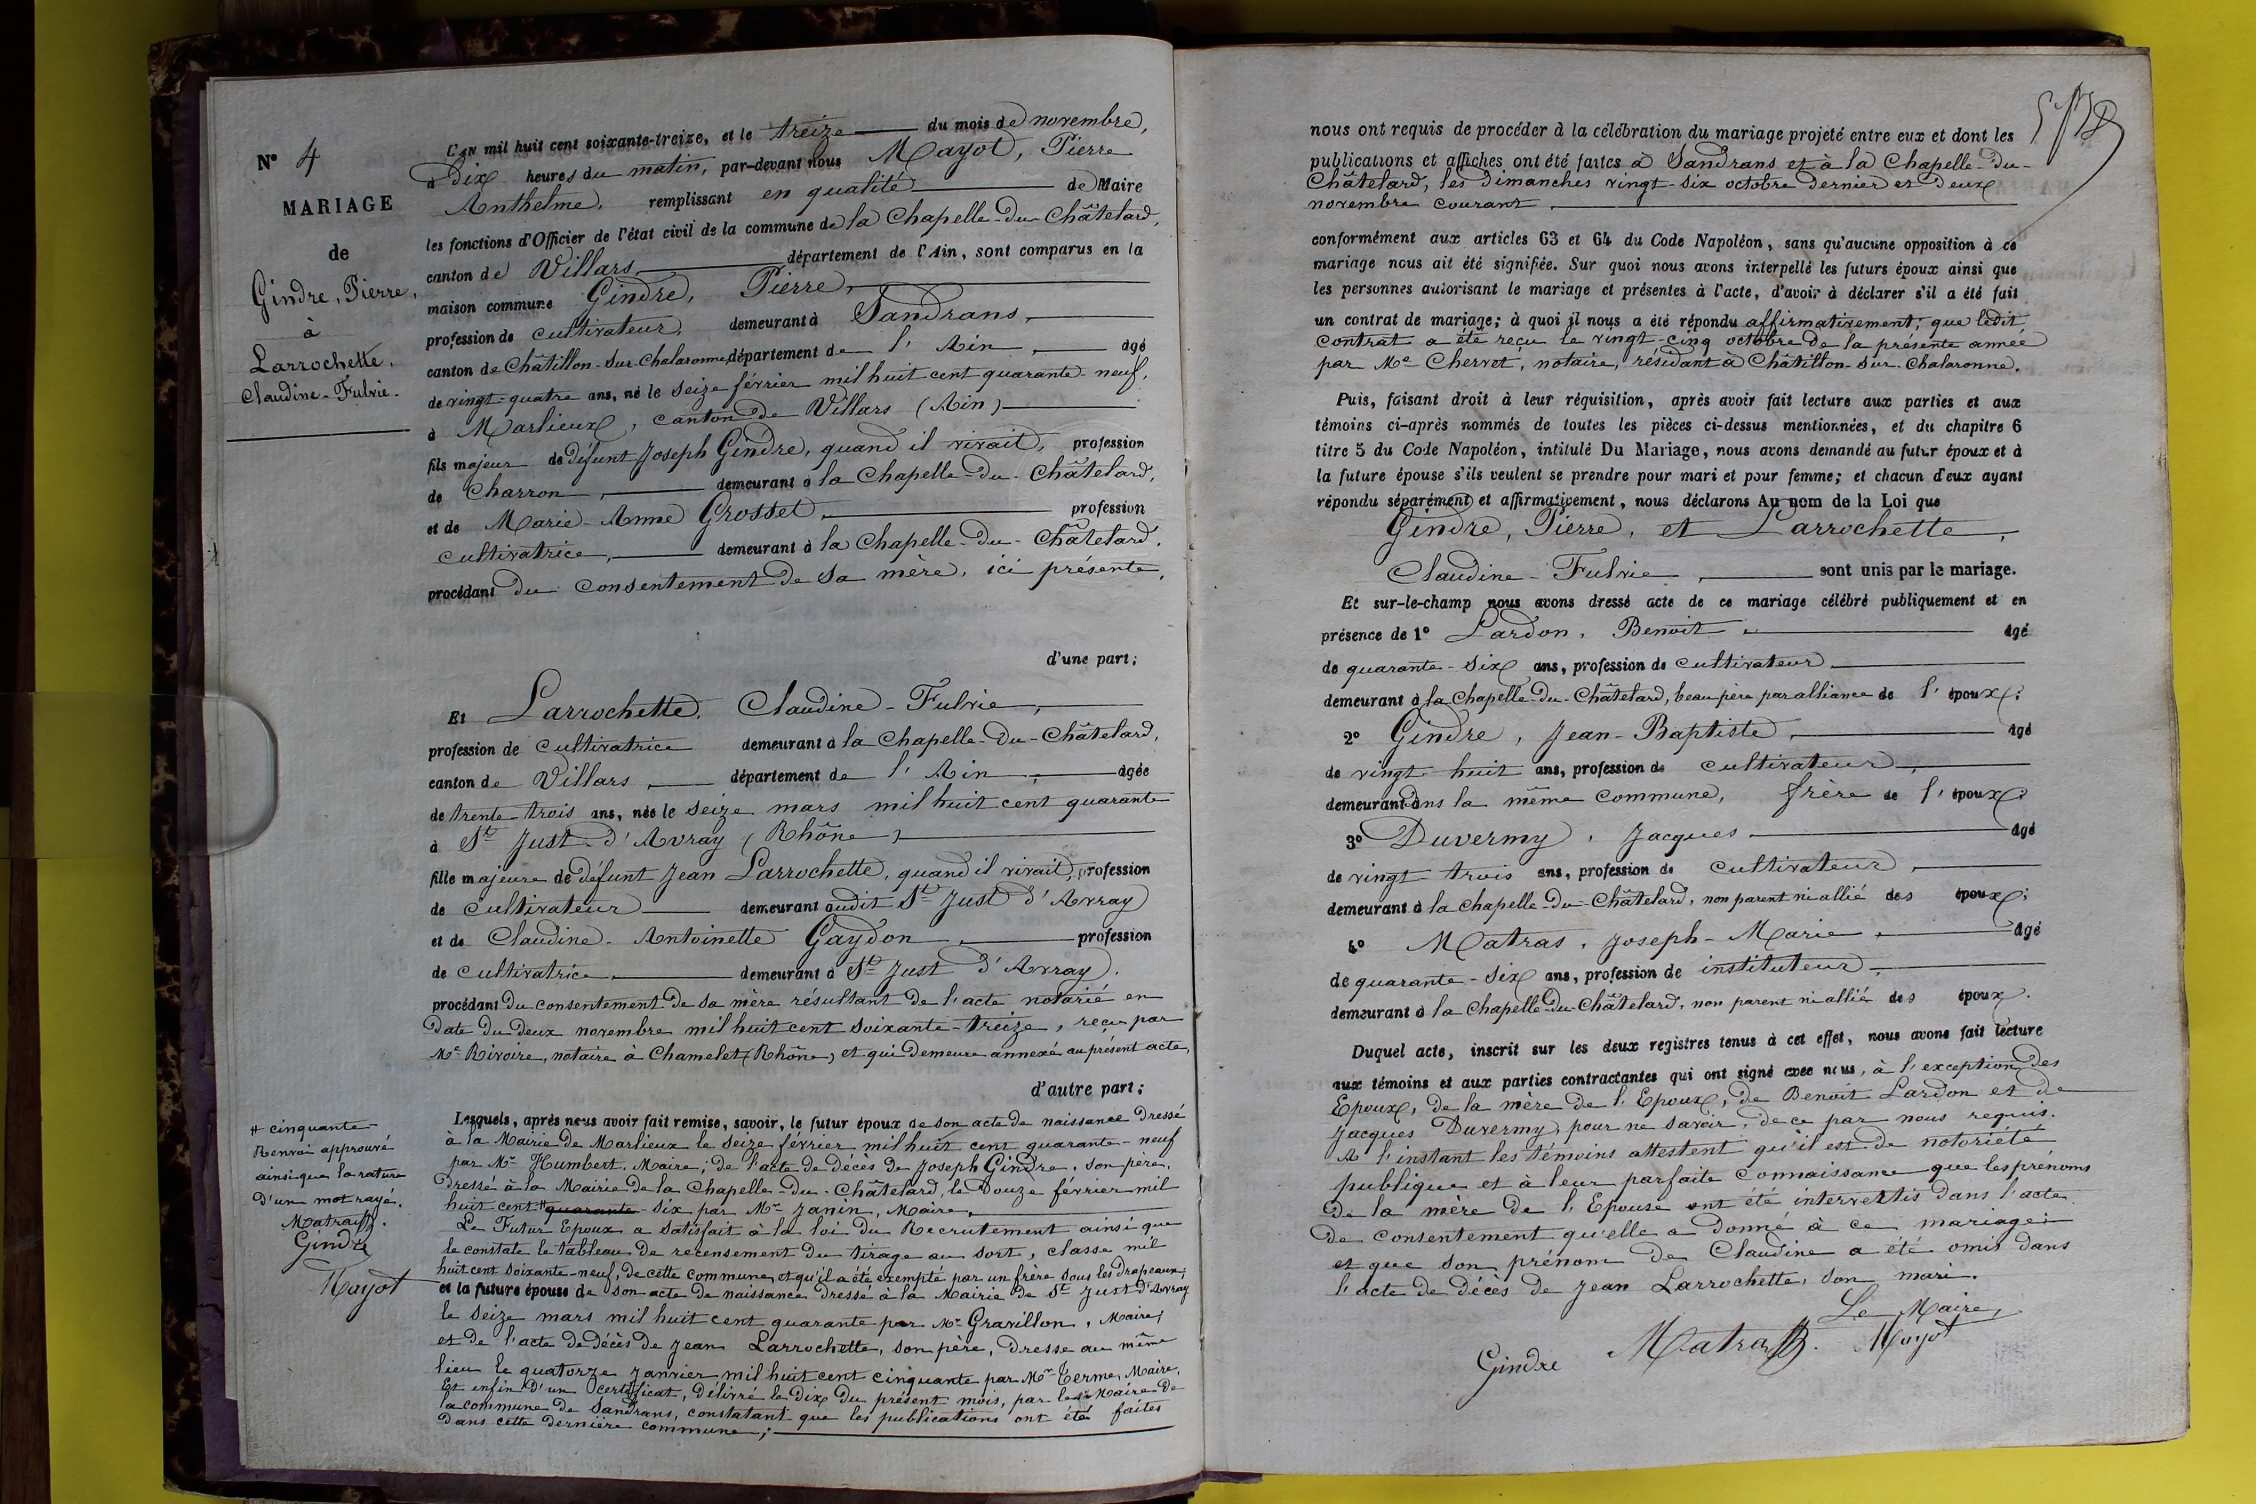 N° 4
MARIAGE
de
Gindre, Pierre,
à
Larrochette,
Claudine-Fulvie.
L'AN mil huit cent soixante-treize, et le treize du mois de novembre,
à Dix heures du matin, par-devant nous Mayot, Pierre
Anthelme, remplissant en qualité de Maire
les fonctions d'Officier de l'état civil de la commune de la Chapelle-du-Châtelard,
canton de Villars, département de l'Ain, sont comparus en la
maison commune Gindre, Pierre,
profession de cultivateur, demeurant à Sandrans,
canton de Châtillon-sur-Chalaronne, département de l'Ain, âgé
de vingt-quatre ans, né le seize février mil huit cent quarante-neuf,
à Marlieux, canton de Villars (Ain)
fils majeur de défunt Joseph Gindre, quand il vivait, profession
de Charron, demeurant à la Chapelle-du-Châtelard,
et de Marie-Anne Grosset, profession
cultivatrice, demeurant à la Chapelle-du-Châtelard,
procédant du consentement de sa mère, ici présente,
d'une part;
Et Larrochette, Claudine-Fulvie,
profession de cultivatrice demeurant à la Chapelle-du-Châtelard,
canton de Villars, département de l'Ain, âgée
de trente-trois ans, née le seize mars mil huit cent quarante
à St Just d'Avray (Rhône)
fille majeure de défunt Jean Larrochette, quand il vivait, profession
de cultivateur demeurant audit St Just d'Avray
et de Claudine-Antoinette Gaydon, profession
de cultivatrice, demeurant à St Just d'Avray,
procédant du consentement de sa mère résultant de l'acte notarié en
date du deux novembre mil huit cent soixante-treize, reçu par
Me Rivoire, notaire à Chamelet (Rhône) et qui demeure annexé au présent acte,
d'autre part;
Lesquels, après nous avoir fait remise, savoir, le futur époux de son acte de naissance dressé
à la Mairie de Marlieux le seize février mil huit cent quarante-neuf
par Mr Humbert, Maire; de l'acte de décès de Joseph Gindre, son père,
dressé à la Mairie de la Chapelle-du-Châtelard, le Douze février mil
huit cent # quarante six par Mr Janin, Maire,
Le Futur Epoux a satisfait à la loi du Recrutement ainsi que
le constate le tableau de recensement du tirage au sort, classe mil
huit cent soixante-neuf, de cette commune, et qu'il a été exempté par un frère sous les drapeaux;
et la future épouse de son acte de naissance dressé à la Mairie de St Just d'Avray
le seize mars mil huit cent quarante par Mr Gravillon, Maire;
et de l'acte de décès de Jean Larrochette, son père, dressé au même
lieu le quatorze janvier mil huit cent cinquante par Mr Terme, Maire,
Et enfin d'un certificat, délivré le Dix du présent mois, par le Maire de
la commune de Sandrans, constatant que les publications ont été faites
dans cette dernière commune;
# cinquante
Renvoi approuvé
ainsi que la rature
d'un mot rayé.
Matras.
Gindre
Mayot
nous ont requis de procéder à la célébration du mariage projeté entre eux et dont les
publications et affiches ont été faites à Sandrans et à la Chapelle-du-
Châtelard, les dimanches vingt-six octobre dernier et deux
novembre courant,
conformément aux articles 63 et 64 du Code Napoléon, sans qu'aucune opposition à ce
mariage nous ait été signifiée. Sur quoi nous avons interpellé les futurs époux ainsi que
les personnes autorisant le mariage et présentes à l'acte, d'avoir à déclarer s'il a été fait
un contrat de mariage; à quoi il nous a été répondu affirmativement; que ledit
contrat a été reçu le vingt-cinq octobre de la présente année
par Me Chervet, notaire, résidant à Châtillon-sur-Chalaronne.
Puis, faisant droit à leur réquisition, après avoir fait lecture aux parties et aux
témoins ci-après nommés de toutes les pièces ci-dessus mentionnées, et du chapitre 6
titre 5 du Code Napoléon, intitulé Du Mariage, nous avons demandé au futur époux et à
la future épouse s'ils veulent se prendre pour mari et pour femme; et chacun d'eux ayant
répondu séparément et affirmativement, nous déclarons Au nom de la Loi que
Gindre, Pierre, et Larrochette,
Claudine-Fulvie, sont unis par le mariage.
Et sur-le-champ nous avons dressé acte de ce mariage célébré publiquement et en
présence de 1° Lardon, Benoit, âgé
de quarante-six ans, profession de cultivateur
demeurant à la Chapelle-du-Châtelard, beau père par alliance de l'époux;
2° Gindre, Jean-Baptiste, âgé
de vingt-huit ans, profession de cultivateur,
demeurant dans la même commune, frère de l'époux;
3° Duvermy, Jacques âgé
de vingt-trois ans, profession de cultivateur,
demeurant à la Chapelle-du-Châtelard, non parent ni allié des époux;
4° Matras, Joseph-Marie, âgé
de quarante-six ans, profession de instituteur,
demeurant à la Chapelle-du-Châtelard, non parent ni allié des époux.
Duquel acte, inscrit sur les deux registres tenus à cet effet, nous avons fait lecture
aux témoins et aux parties contractantes qui ont signé avec nous, à l'exception des
Epoux, de la mère de l'Epoux, de Benoit Lardon et de
Jacques Duvermy, pour ne savoir, de ce par nous requis.
A l'instant les témoins attestent qu'il est de notoriété
publique et à leur parfaite connaissance que les prénoms
de la mère de l'Epouse ont été intervertis dans l'acte
de consentement qu'elle a donné à ce mariage;
et que son prénom de Claudine a été omis dans
l'acte de décès de Jean Larrochette, son mari.
Le Maire,
Gindre Matras. Mayot